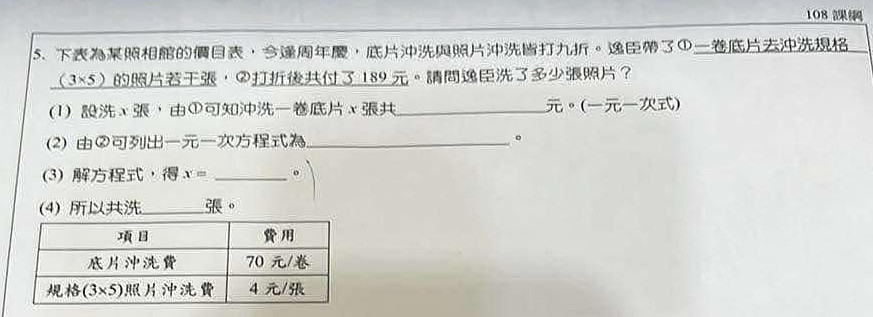 108 課綱
5. 下表為某照相館的價目表，今逢周年慶，底片沖洗與照片沖洗皆打九折。逸臣帶了①一卷底片去沖洗規格
（3×5）的照片若干張，②打折後共付了 189 元。請問逸臣洗了多少張照片？
(1) 設洗 x 張，由①可知沖洗一卷底片 x 張共____________元。(一元一次式)
(2) 由②可列出一元一次方程式為________________。
(3) 解方程式，得 x = ______。
(4) 所以共洗_____張。
項目 費用
底片沖洗費 70 元/卷
規格(3×5)照片沖洗費 4 元/張